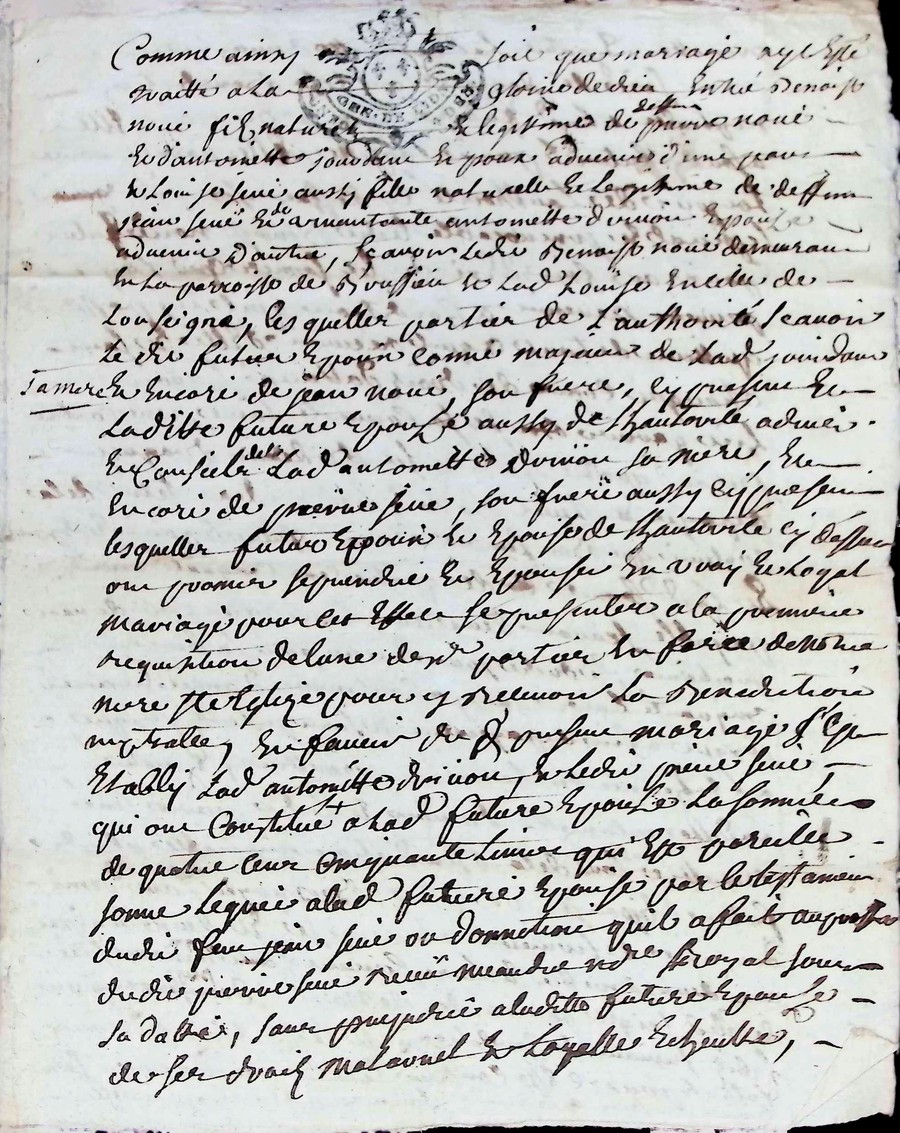 Comme ainsy soit que mariage aye esté
traitté a la gloire de dieu Entre Benoist
noué fils naturel Et legitime de deffun pierre noué
Et d'antoinette jourdane Epoux advenir d'une part
Et Louise seue aussy fille naturelle Et legitime de deffun
jean seue Et de vivantante antoinette Epouse
advenir d'autre, sçavoir Ledit Benoist noué demeuran
En La parroisse de Roussieu Et Lad Louise En celle de
Lesquelles parties de L'authorité scavoir
Le dit futur Epoux comme majeur de Lad jourdane
sa mere
Et Encore de jean noué, son frere, Cy presen Et
Laditte future Epouse aussy de l'hautorité advis
Et Conseil de Lad antoinette sa mere, Et
Encore de pierre seue, son frere aussy Cy presen
lesquelles futur Epoux Et Epouse de l'hautorité Cy dessus
ont promis se prendre Et Epouser En vray Et Loyal
mariage pour Cet Effet se presenter a la premiere
requisition de lune desd parties En face de notre
mere ste Eglize pour y Recevoir La Benediction
nuptialle, En faveur du presen mariage s'est
Etably Lad antoinette Et Ledit pierre seue,
qui ont Constitué a Lad future Epouse La somme
de quatre cens Cinquante Livres qui Est pareille
somme Leguée a lad future Epouse par le testamen
dudit feu jean seue ou donnation quil a fait au proffit
dudit pierre seue Receu meandre nore Royal sous
sa datte, sans prejudice a laditte future Epouse
de ses droits maternel Et Legalle Echeutte,